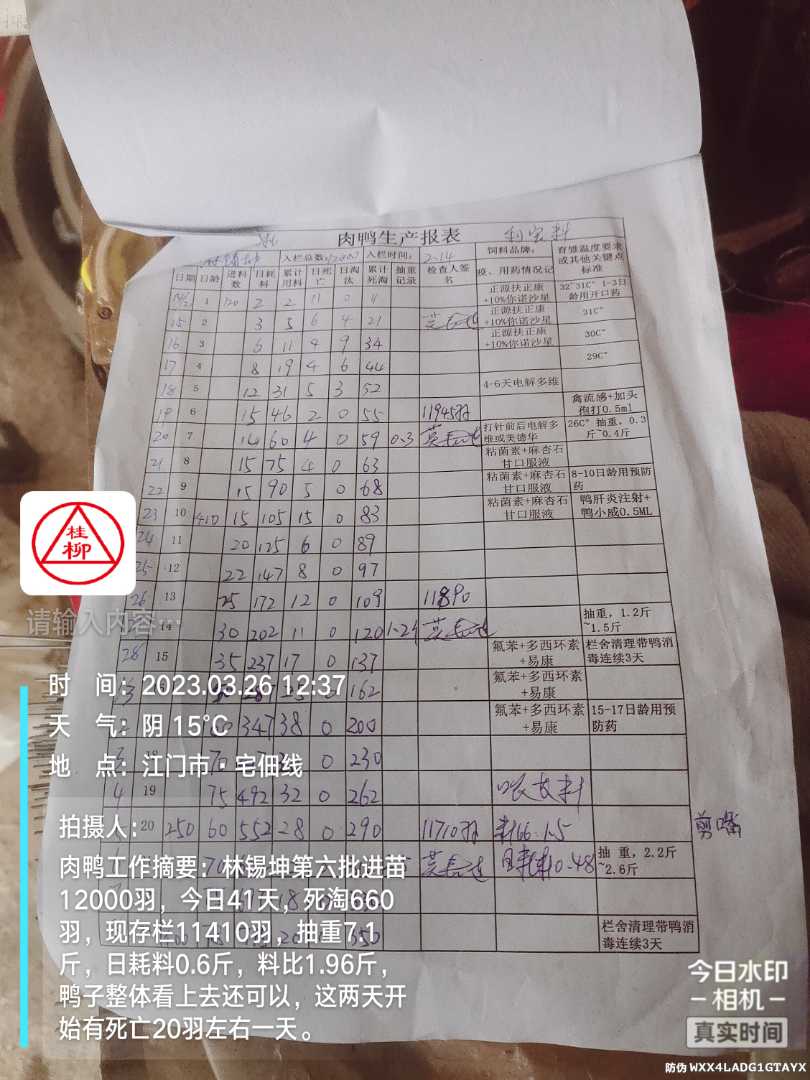 肉鸭生产报表
利宝料
入栏总数:
入栏时间: 2.14
饲料品牌:
育雏温度要求或其他关键点标准
日期 日龄 进料数 日耗料 累计用料 日死亡 日淘汰 累计死淘 抽重记录 检查人签名 疫、用药情况记
1 120 2 2 11 0 11 正源扶正康+10%你诺沙星 32~31C° 1-3日龄用开口药
15 2 3 5 6 4 21 正源扶正康+10%你诺沙星 31C°
16 3 6 11 4 9 34 正源扶正康+10%你诺沙星 30C°
17 4 8 19 4 6 44 29C°
18 5 12 31 5 3 52 4-6天电解多维
19 6 15 46 2 0 55 11945羽 禽流感+加头孢打0.5ml
20 7 14 60 4 0 59 0.3 打针前后电解多维或芙德华 26C° 抽重，0.3斤~0.4斤
21 8 15 75 4 0 63 粘菌素+麻杏石甘口服液
22 9 15 90 5 0 68 粘菌素+麻杏石甘口服液 8-10日龄用预防药
23 10 410 15 105 15 0 83 粘菌素+麻杏石甘口服液 鸭肝炎注射+鸭小感0.5ML
24 11 20 125 6 0 89
25 12 22 147 8 0 97
26 13 25 172 12 0 109 11890
14 30 202 11 0 120 抽重，1.2斤~1.5斤
28 15 35 237 17 0 137 氟苯+多西环素+易康 栏舍清理带鸭消毒连续3天
0 162 氟苯+多西环素+易康
347 38 0 200 氟苯+多西环素+易康 15-17日龄用预防药
3 18 0 230
4 19 75 492 32 0 262
20 250 60 552 28 0 290 11710羽 剪嘴
抽 重，2.2斤~2.6斤
栏舍清理带鸭消毒连续3天
桂柳
请输入内容…
时 间：2023.03.26 12:37
天 气：阴 15℃
地 点：江门市·宅佃线
拍摄人：
肉鸭工作摘要：林锡坤第六批进苗
12000羽，今日41天，死淘660
羽，现存栏11410羽，抽重7.1
斤，日耗料0.6斤，料比1.96斤，
鸭子整体看上去还可以，这两天开
始有死亡20羽左右一天。
今日水印
相机
真实时间
防伪 WXX4LADG1GTAYX